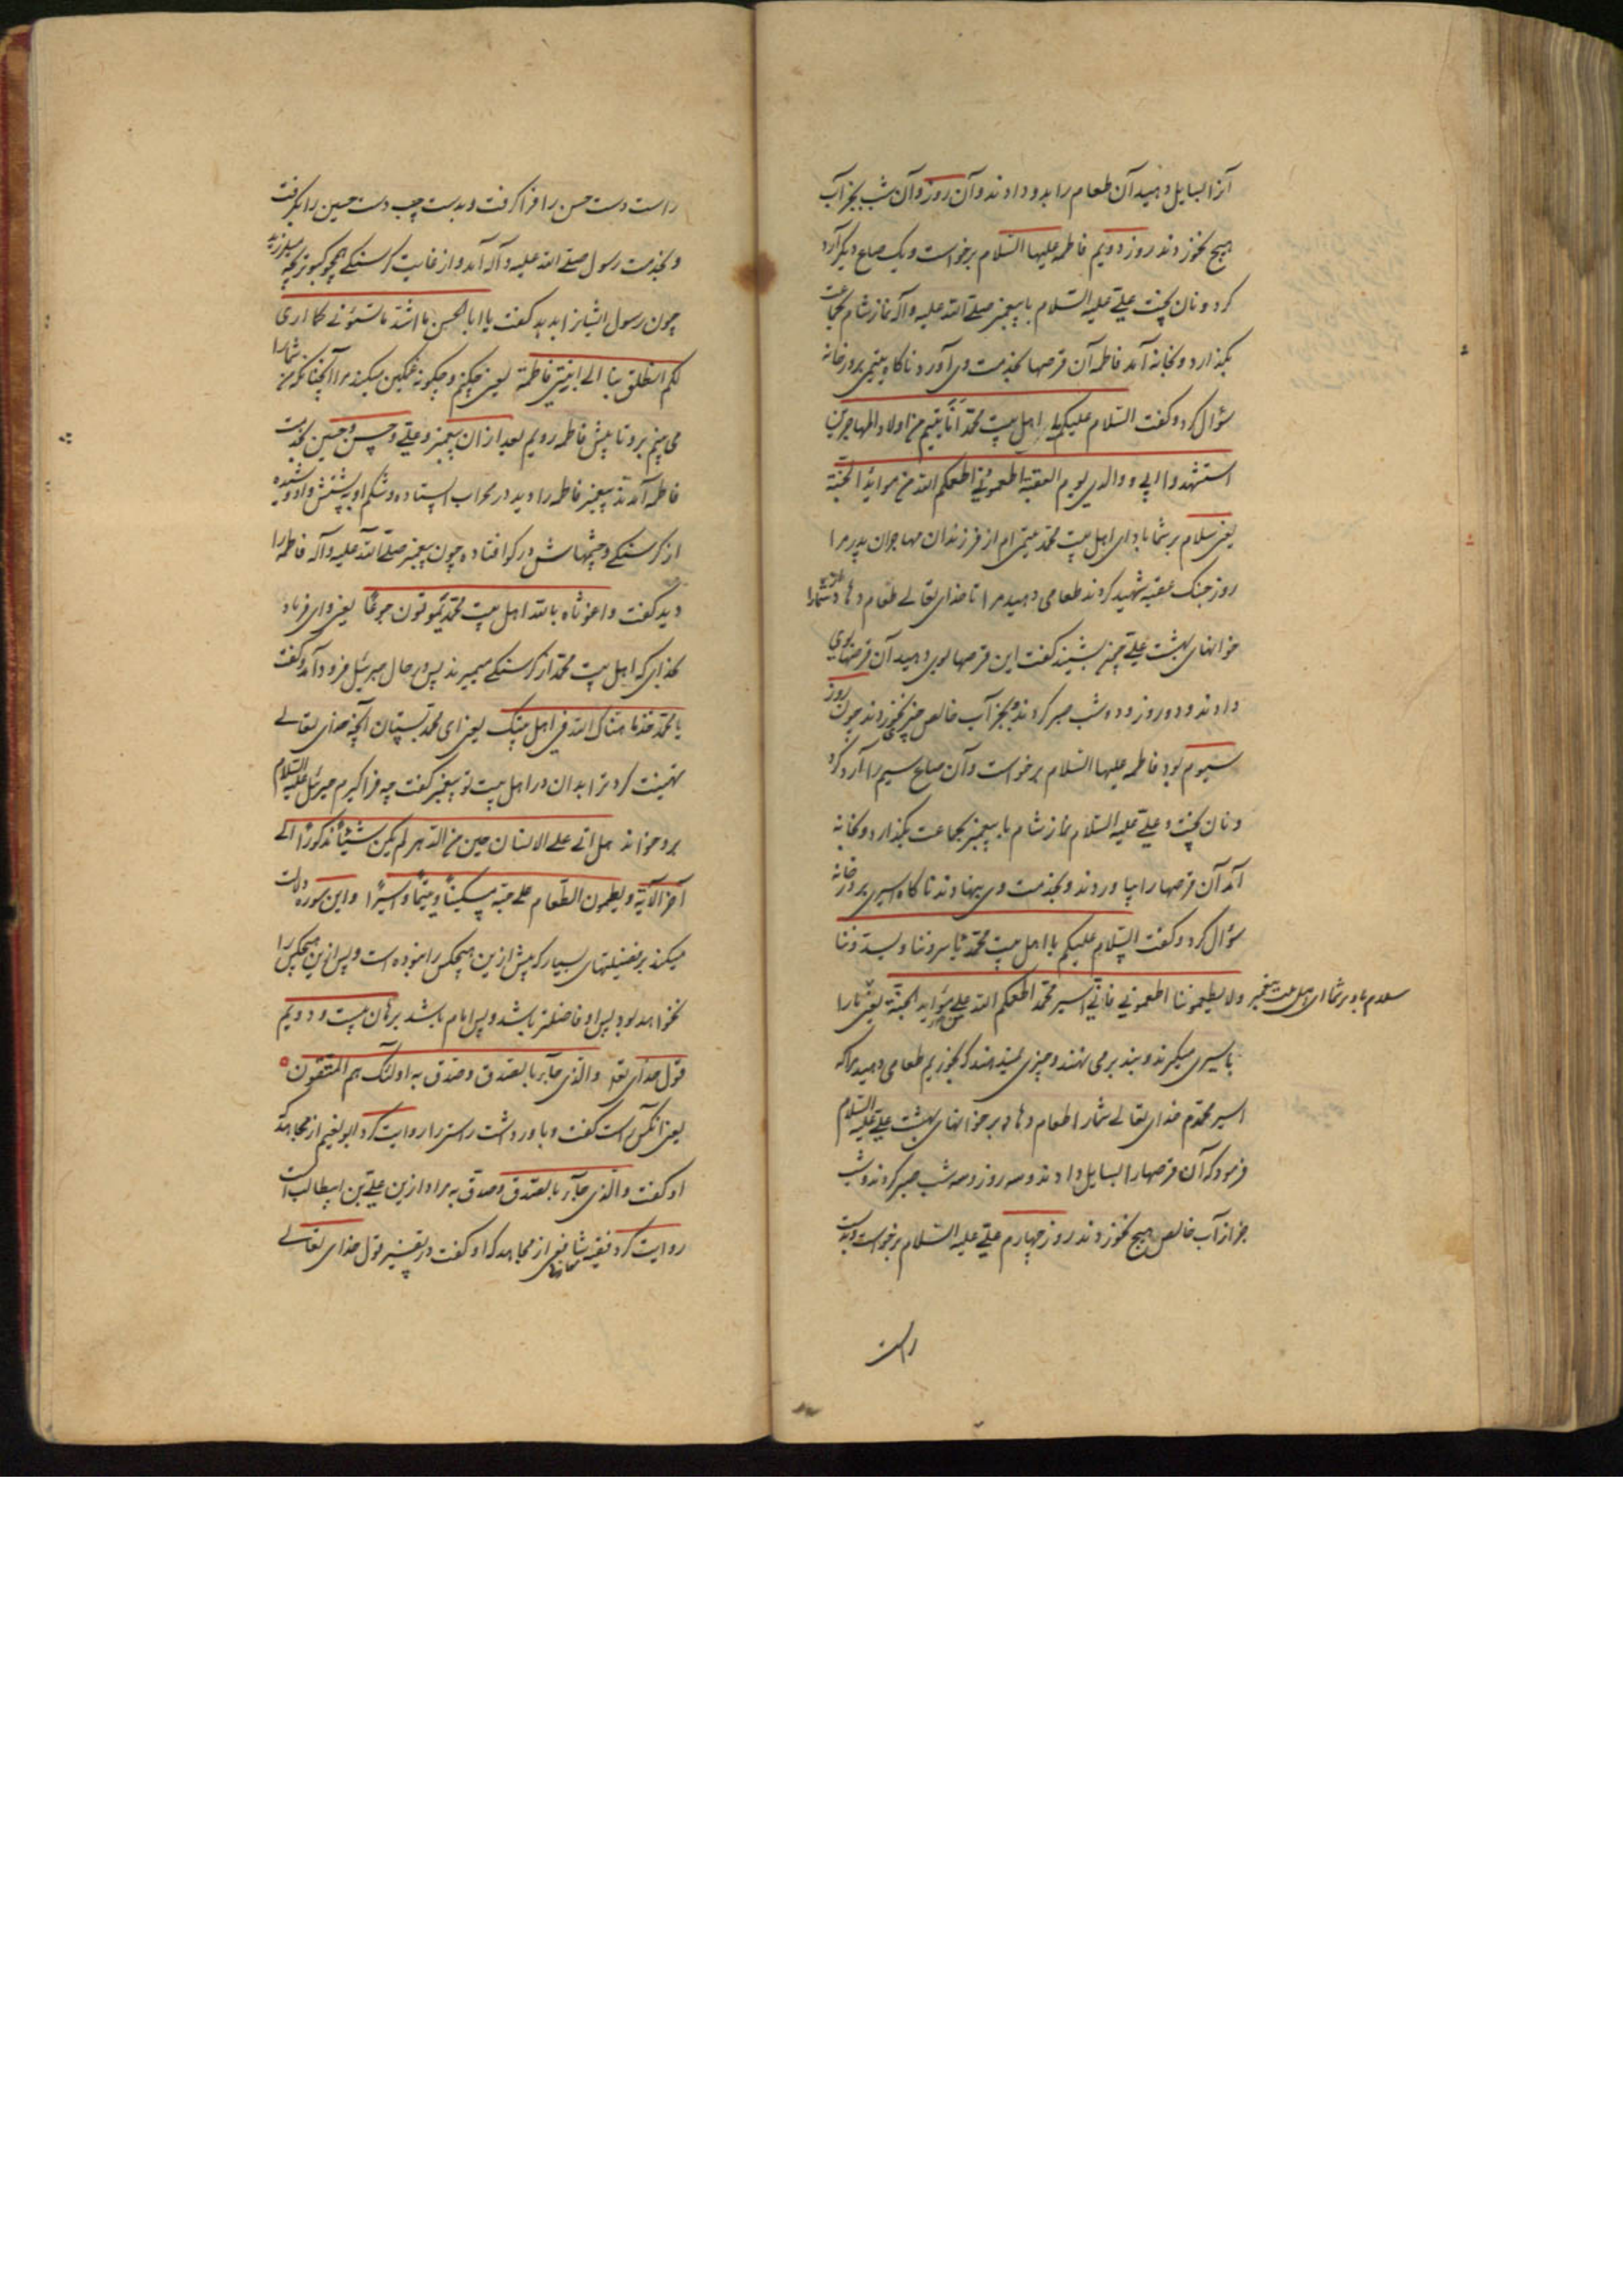 آنرا بسایل دهید آن طعام را بدو دادند و آن روز و آن شب بجز آب
هیچ نخوردند روز دویم فاطمه علیها السلام برخواست و یک صاع دیگر آرد
کرد و نان پخت علی علیه السلام با پیغمبر صلی الله علیه و آله نماز شام بجماعت
بگذارد و بخانه آمد فاطمه آن قرصها بخدمت وی آورد ناکاه یتیمی بر در خانه
سؤال کرد و گفت السلام علیکم یا اهل بیت محمد انا یتیم من اولاد المهاجرین
استشهد والدی یوم العقبة اطعمونی اطعمکم الله من موائد الجنة
یعنی سلام بر شما باد ای اهل بیت محمد یتیمی ام از فرزندان مهاجران پدر مرا
روز جنک عقبه شهید کردند طعامی دهید مرا تا خدای تعالی طعام دهاد شما را
خوانهای بهشت علی چون بشنید گفت این قرصها بوی دهید آن قرصها بوی
دادند و دو روز و دو شب صبر کردند و بجز آب خالص چیزی نخوردند چون روز
سیوم بود فاطمه علیها السلام برخواست و آن صاع سیم را آرد کرد
و نان پخت و علی علیه السلام نماز شام با پیغمبر بجماعت بگذارد و بخانه
آمد آن قرصها را بیاوردند و بخدمت وی بنهادند ناکاه اسیری بر در خانه
سؤال کرد و گفت السلام علیکم یا اهل بیت محمد تاسروننا و تشدوننا
ولا تطعموننا اطعمونی فانی اسیر محمد اطعمکم الله علی موائد الجنة یعنی ما را
سلام باد بر شما ای اهل بیت پیغمبر
باسیری میگیرند و بند بر می نهند و چیزی نمیدهند که بخوریم طعامی دهید مرا که
اسیر محمدم خدای تعالی شما را طعام دهاد بر خوانهای بهشت علی علیه السلام
فرمود که آن قرصها را بسایل دادند و سه روز و سه شب صبر کردند و شب
جز از آب خالص هیچ نخوردند روز چهارم علی علیه السلام برخواست و بدست
راست
راست دست حسن را فرا گرفت و بدست چپ دست حسین را بگرفت
و بخدمت رسول صلی الله علیه و آله آمد و از غایت گرسنگی همچو کبوتر بچه میلرزید
چون رسول ایشانرا بدید گفت یا ابا الحسن ما اشد ما تسوءنی ما اری
لکم انطلق بنا الی ابنتی فاطمة یعنی چکنم و چگونه غمگین میکند مرا آنچنانکه من شما را
می بینم برو تا پیش فاطمه رویم بعد از ان پیغمبر و علی و حسن و حسین بخدمت
فاطمه آمدند پیغمبر فاطمه را دید در محراب ایستاده و شکم او به پشتش دوسیده
از گرسنگی و چشمهاش در گو افتاده چون پیغمبر صلی الله علیه و آله فاطمه را
دید گفت واغوثاه بالله اهل بیت محمد یموتون جوعا یعنی وای فریاد
بخدای که اهل بیت محمد از گرسنگی میمیرند پس در حال جبرئیل فرود آمد و گفت
یا محمد خذ ما هناک الله فی اهل بیتک یعنی ای محمد بستان آنچه خدای تعالی
تهنیت کرد ترا بدان در اهل بیت تو پیغمبر گفت چه فرا گیرم جبرئیل علیه السلام
برو خواند هل اتی علی الانسان حین من الدهر لم یکن شیئا مذکورا الی
آخر الآیة و یطعمون الطعام علی حبه مسکینا و یتیما و اسیرا و این سوره دلالت
میکند بر فضیلتهای بسیار که پیش ازین هیچکس را نبوده است و پس ازین هیچکس را
نخواهد بود پس او فاضلتر باشد و پس امام باشد برهان بیست و دویم
قول خدای تعا والذی جاء بالصدق و صدق به اولئک هم المتقون
یعنی آنکس راست گفت و باور داشت راستی را روایت کرد ابو نعیم از مجاهد که
او گفت والذی جاء بالصدق و صدق به مراد ازین علی بن ابیطالب است
روایت کرد فقیه شافعی از مجاهد که او گفت در تفسیر قول خدای تعالی